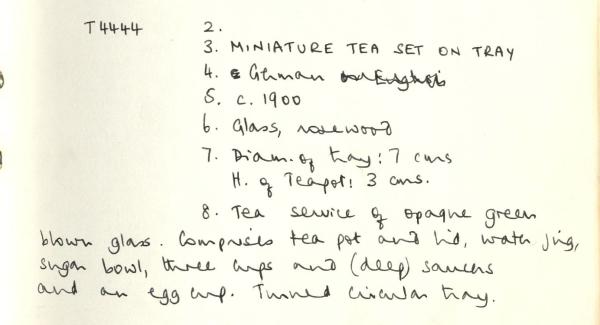 T4444 2.
3. MINIATURE TEA SET ON TRAY
4. German
5. c. 1900
6. Glass, rosewood
7. Diam. of tray: 7 cms
H. of Teapot: 3 cms.
8. Tea service of opaque green
blown glass. Comprises tea pot and lid, water jug,
sugar bowl, three cups and (deep) saucers
and an egg cup. Turned circular tray.